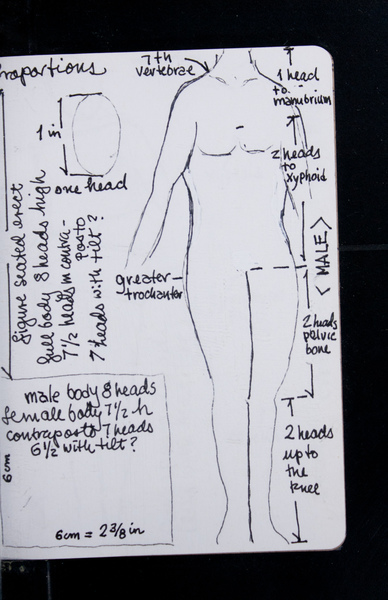 roportions
1 in
one head
figure seated erect
full body 8 heads high
7½ heads in contra-
posto
7 heads with tilt?
male body 8 heads
female body 7½ h
contraposto 7 heads
6½ with tilt?
6cm
6cm = 2 3/8 in
7th
vertebrae
greater-
trochanter
1 head
to
manubrium
2 heads
to
xyphoid
< MALE >
2 heads
pelvic
bone
2 heads
up to
the
knee